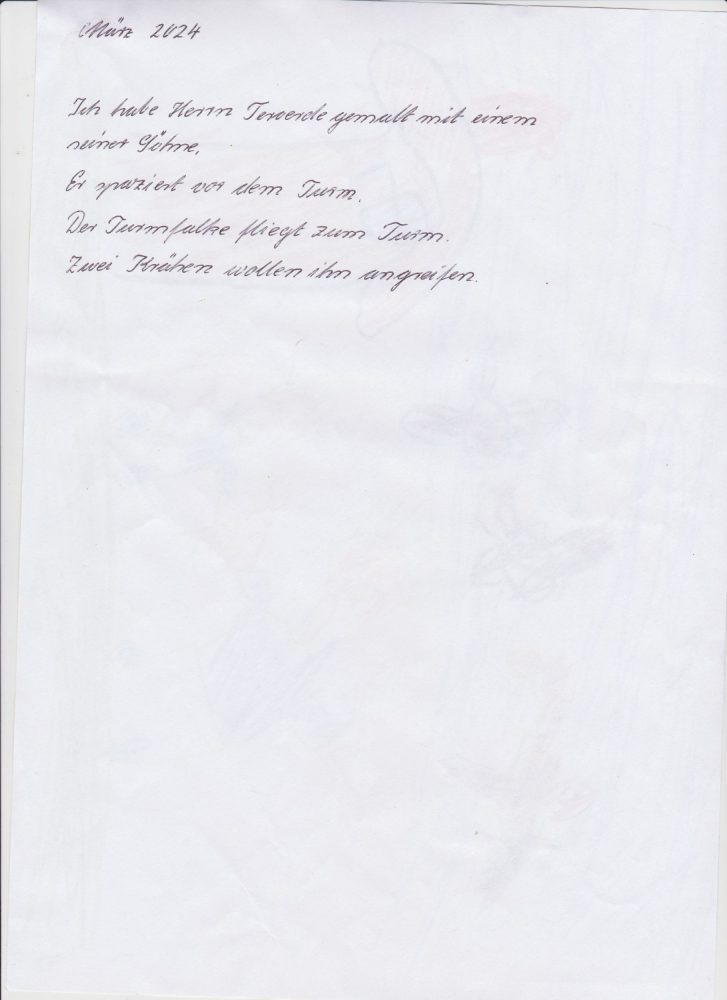 März 2024
Ich habe Herrn Teroerde gemalt mit einem
seiner Söhne.
Er spaziert vor dem Turm.
Der Turmfalke fliegt zum Turm.
Zwei Krähen wollen ihn angreifen.